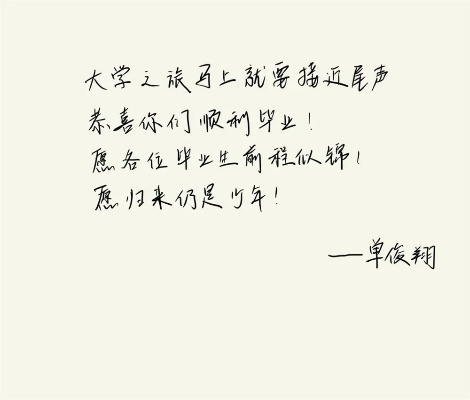 大学之旅马上就要接近尾声
恭喜你们顺利毕业！
愿各位毕业生前程似锦！
愿归来仍是少年！
——单俊翔